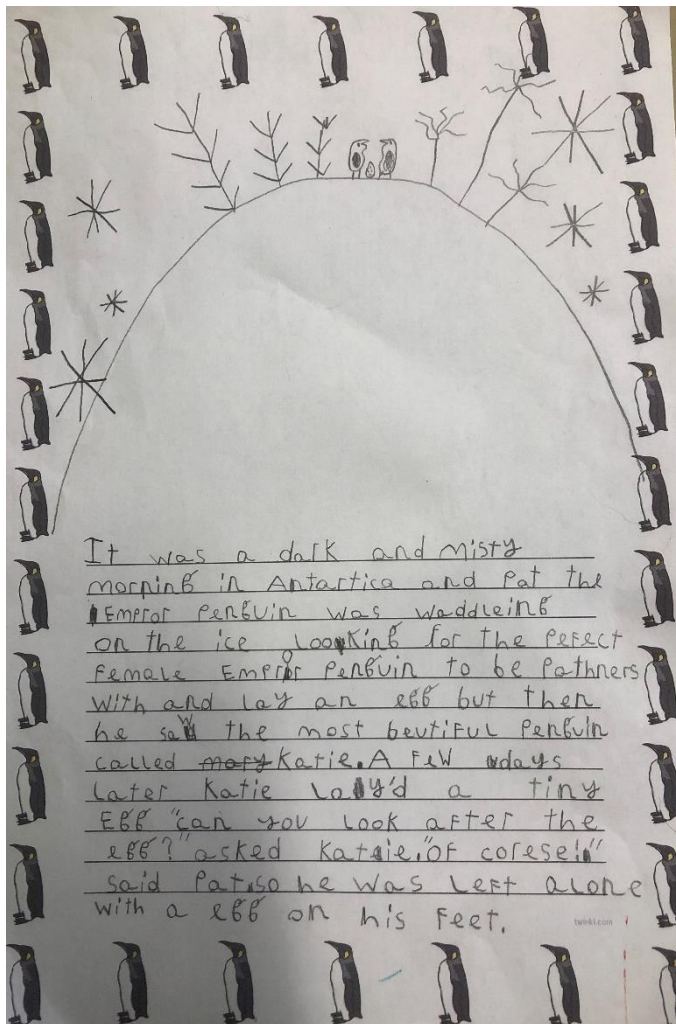 It was a dark and misty
morning in Antartica and Pat the
Empror Penguin was waddleing
on the ice looking for the perect
female Emporor Penguin to be Pathners
with and lay an egg but then
he saw the most beutiful Penguin
called mary Katie. A few days
later Katie lay'd a tiny
Egg "can you look after the
egg?" asked Katie. "Of corese!"
said Pat. so he was left alone
with a egg on his feet.
twinkl.com